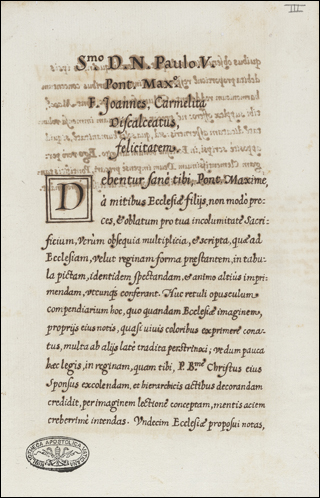 III
Smo D. N. Paulo. V.
Pont. Maxo.
F. Joannes, Carmelita
Discalceatus,
felicitatem.
Debentur sanè tibi, Pont. Maxime,
à mitibus Ecclesiæ filijs, non modò pre-
ces, & oblatum pro tua incolumitate Sacri-
ficium, Verùm obsequia multiplicia, & scripta, quæ ad
Ecclesiam, velut reginam forma præstantem, in tabu-
la pictam, identidem spectandam, et animo altiùs impri-
mendam, utcunque conferant. Huc retuli opusculum
compendiarium hoc, quo quandam Ecclesiæ imaginem,
proprijs eius notis, quasi vivis coloribus exprimere cona-
tus, multa ab alijs latè tradita perstrinxi; ut dum pauca
hæc legis, in reginam, quam tibi, P. Bme Christus eius
Sponsus excolendam, et hierarchicis actibus decorandam
credidit, per imaginem lectione conceptam, mentis aciem
creberrimè intendas. Undecim Ecclesiæ proposui notas,